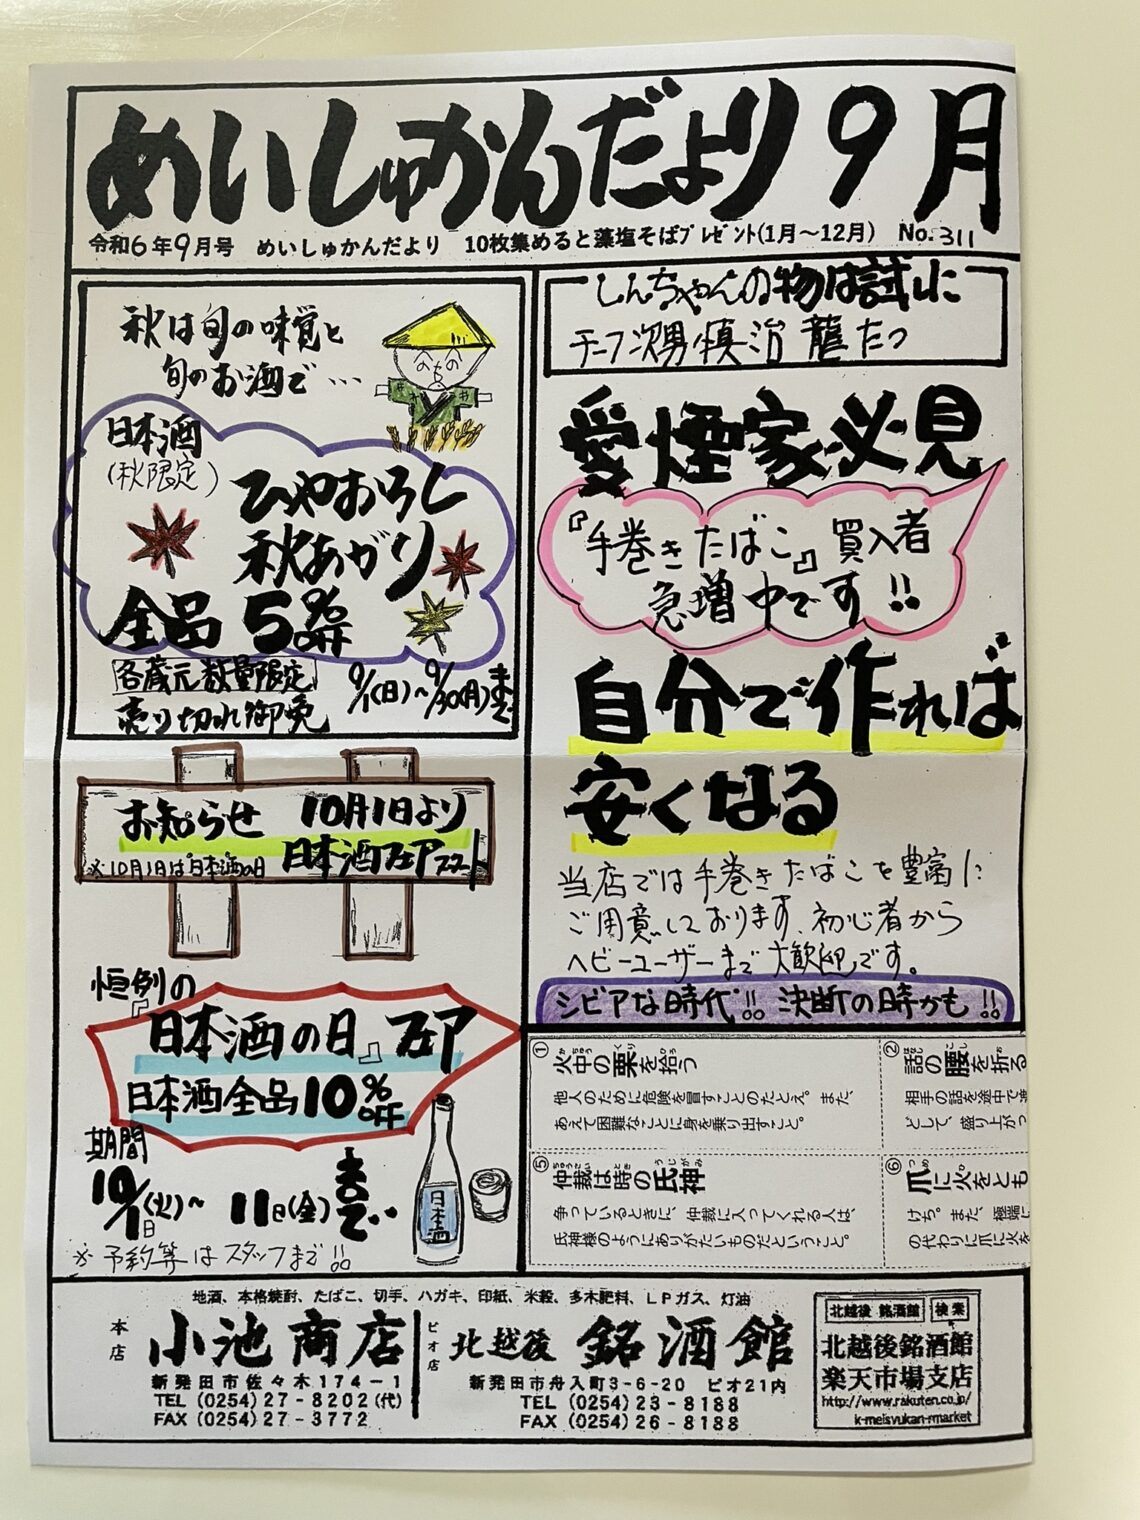 めいしゅかんだより 9月
令和6年9月号 めいしゅかんだより 10枚集めると藻塩そばプレゼント(1月～12月) No.311
秋は旬の味覚と
旬のお酒で…
へのへの
も
へ
日本酒
(秋限定)
ひやおろし
秋あがり
全品 5%OFF
各蔵元数量限定
売り切れ御免
9/1(日)～9/30(月)まで
お知らせ 10月1日より
※10月1日は"日本酒の日 日本酒フェアスタート
恒例の
『日本酒の日』フェア
日本酒全品10%OFF
期間
10/1(火)～11日(金)まで
日本酒
※予約等はスタッフまで!!
しんちゃんの物は試しに
チーフ次男慎治 龍たつ
愛煙家必見
『手巻きたばこ』買入者
急増中です!!
自分で作れば
安くなる
当店では手巻きたばこを豊富に
ご用意しております、初心者から
ヘビーユーザーまで大歓迎です。
シビアな時代!! 決断の時かも!!
① 火中の栗を拾う
他人のために危険を冒すことのたとえ。また、
あえて困難なことに身を乗り出すこと。
② 話の腰を折る
相手の話を途中で
どして、盛り上がっ
⑤ 仲裁は時の氏神
争っているときに、仲裁に入ってくれる人は、
氏神様のようにありがたいものだということ。
⑥ 爪に火をとも
けち。また、極端に
の代わりに爪に火を
地酒、本格焼酎、たばこ、切手、ハガキ、印紙、米穀、多木肥料、LPガス、灯油
本店 小池商店
新発田市佐々木174-1
TEL (0254)27-8202(代)
FAX (0254)27-3772
ピオ店 北越後 銘酒館
新発田市舟入町3-6-20 ピオ21内
TEL (0254)23-8188
FAX (0254)26-8188
北越後 銘酒館 検索
北越後銘酒館
楽天市場支店
http://www.rakuten.co.jp/
k-meisyukan-rmarket